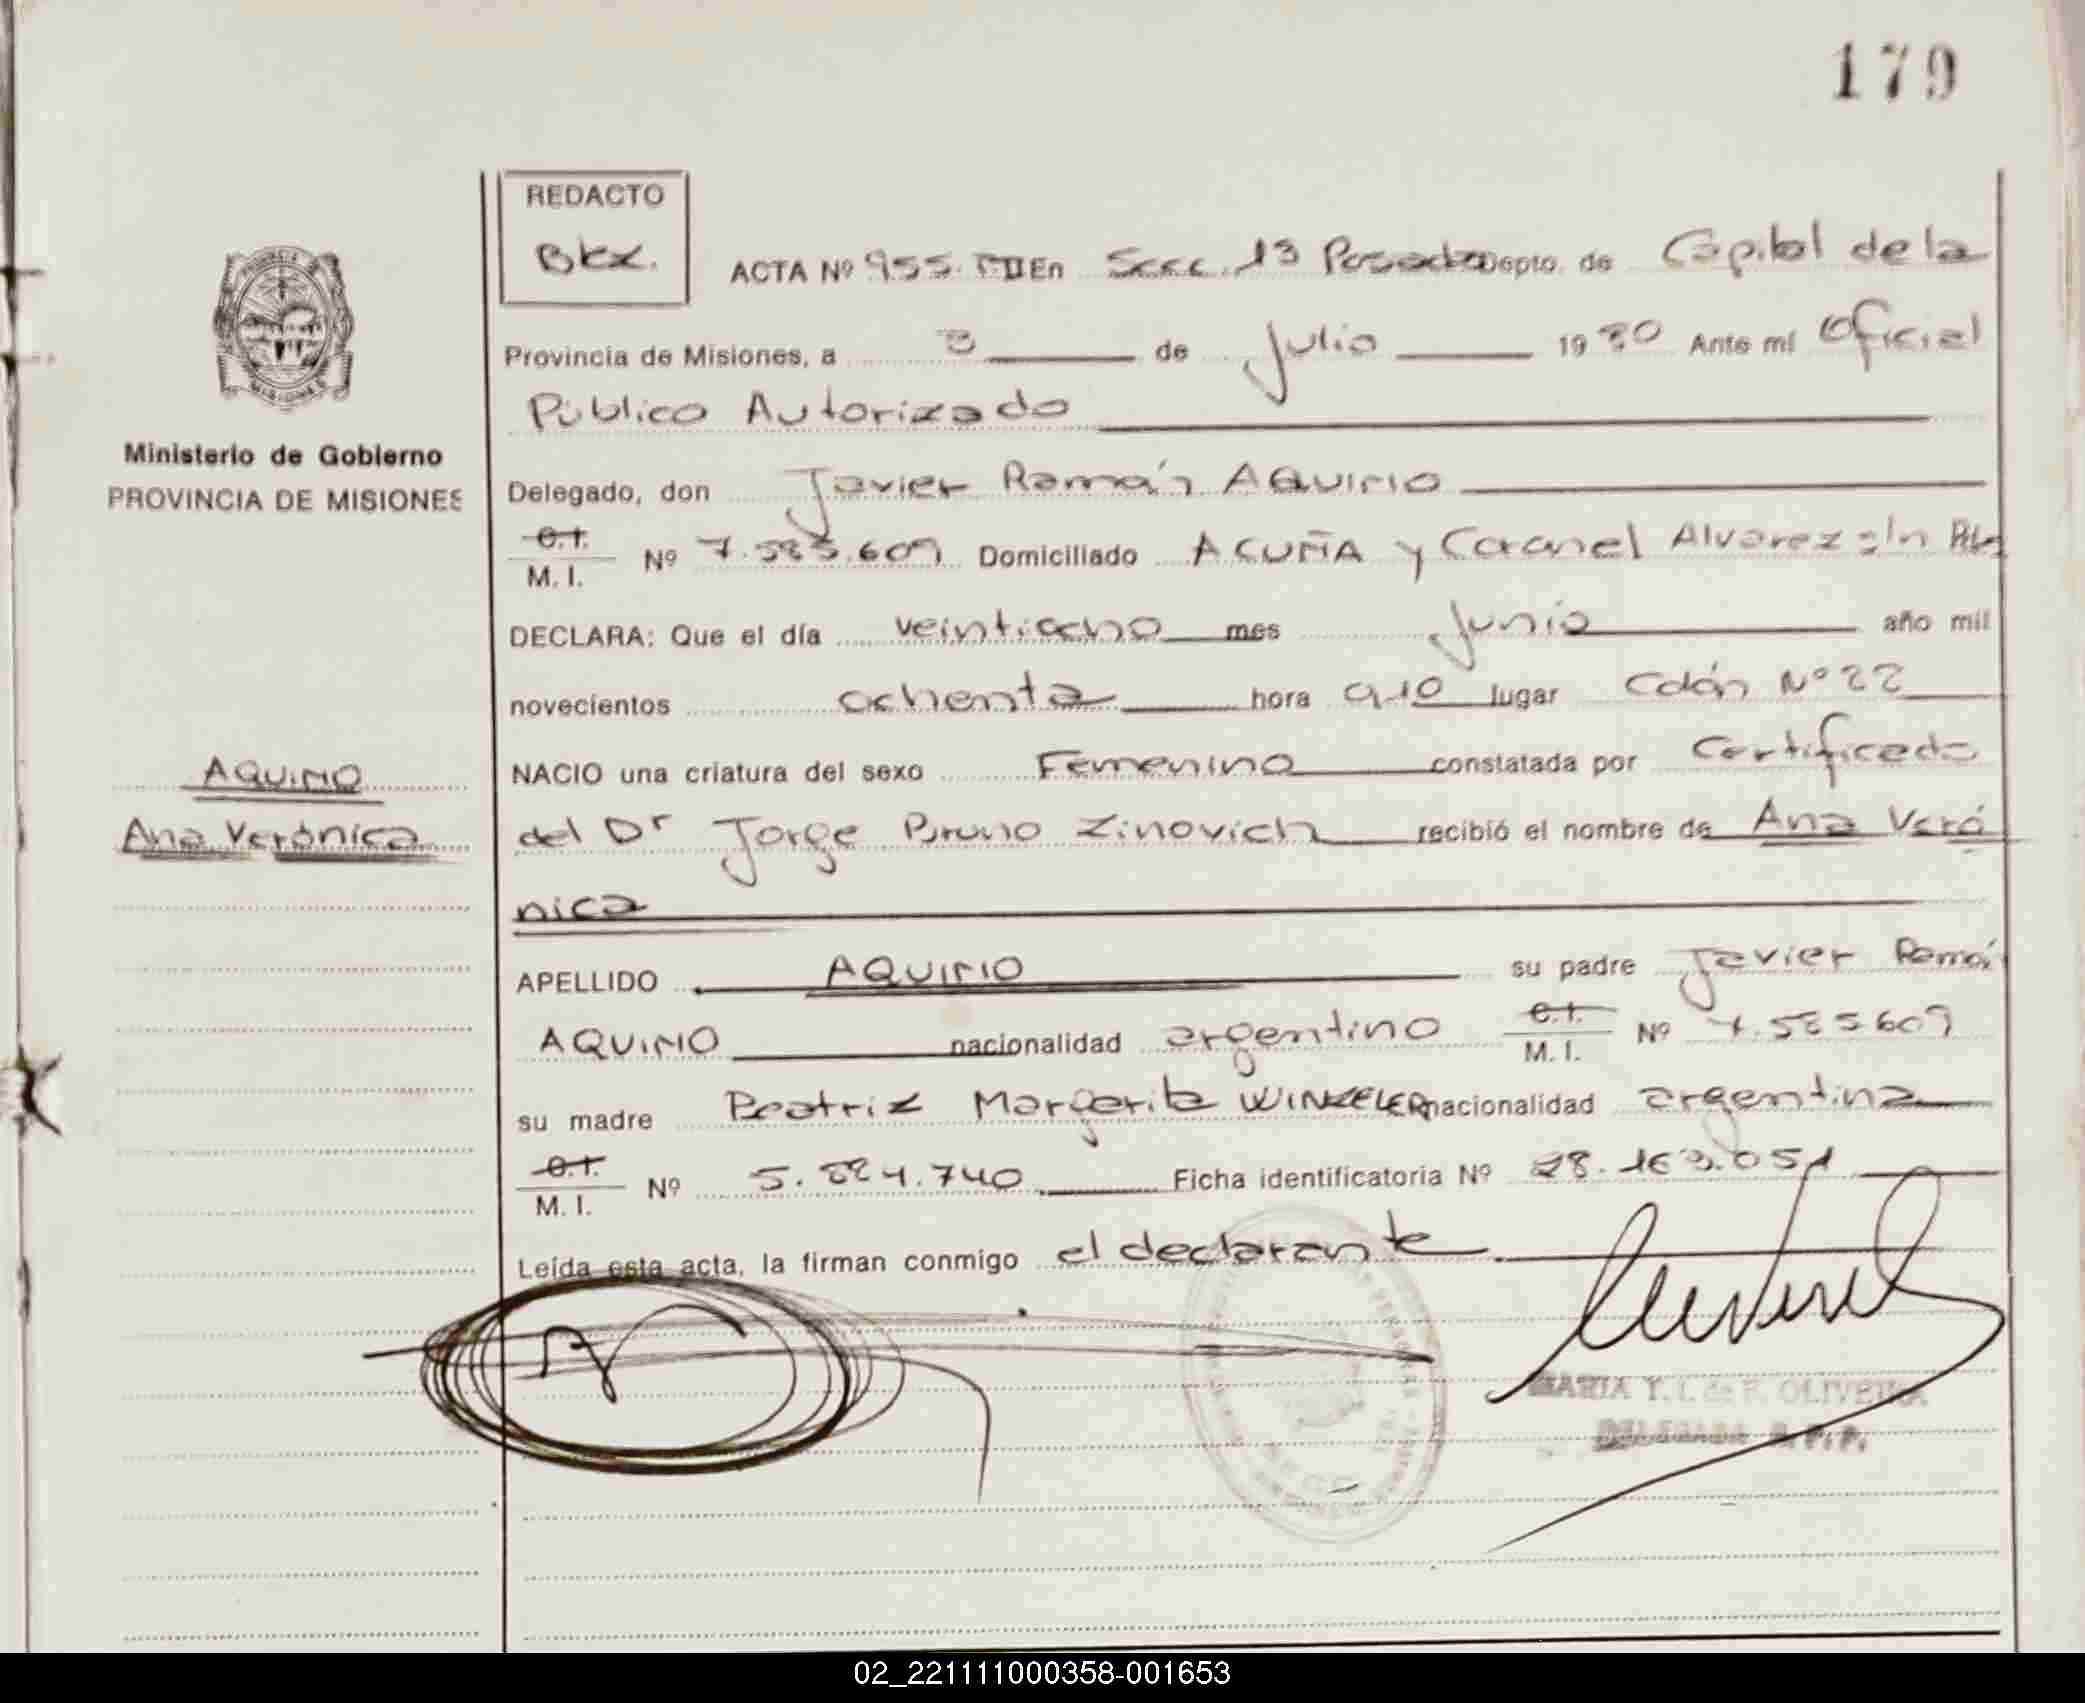 179
REDACTO
Bkx.
ACTA Nº 955. T.II En Secc. 13 Posadas Depto. de Capital de la
Provincia de Misiones, a 3 de Julio 1980 Ante mí Oficial
Público Autorizado
Ministerio de Gobierno
PROVINCIA DE MISIONES
Delegado, don Javier Ramón AQUINO
C.I.
M. I. Nº 7.585.609 Domiciliado ACUÑA y Coronel Alvarez s/n
DECLARA: Que el día veintiocho mes Junio año mil
novecientos ochenta hora 9.10 lugar Colón Nº 22
AQUINO
NACIO una criatura del sexo Femenino constatada por Certificado
Ana Verónica
del Dr Jorge Bruno Zinovich recibió el nombre de Ana Veró
nica
APELLIDO AQUINO su padre Javier Ramón
AQUINO nacionalidad argentino C.I. M. I. Nº 7.585609
su madre Beatriz Margarita WINKELER nacionalidad argentina
C.I.
M. I. Nº 5.884.740 Ficha identificatoria Nº 28.163.051
Leída esta acta, la firman conmigo el declarante
MARIA T. I. de F. OLIVEIRA
DELEGADA R. P. P.
02_221111000358-001653